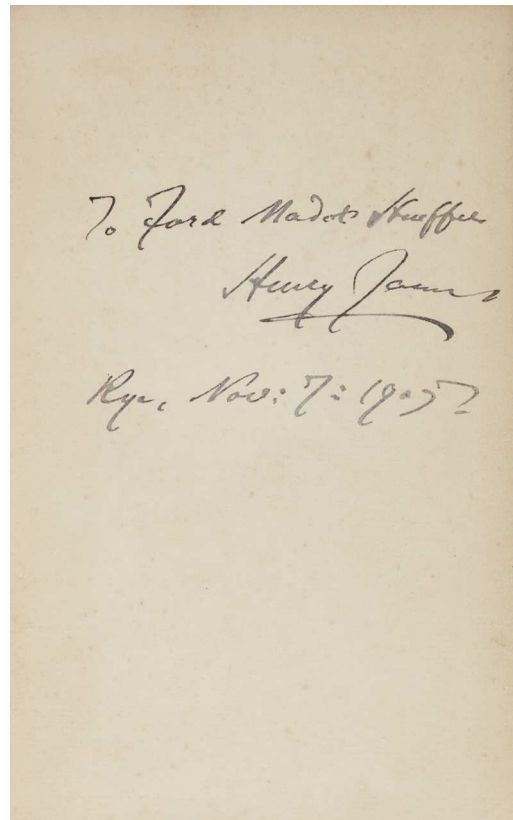 To Ford Madox Hueffer
Henry James
Rye, Nov: 7: 1905